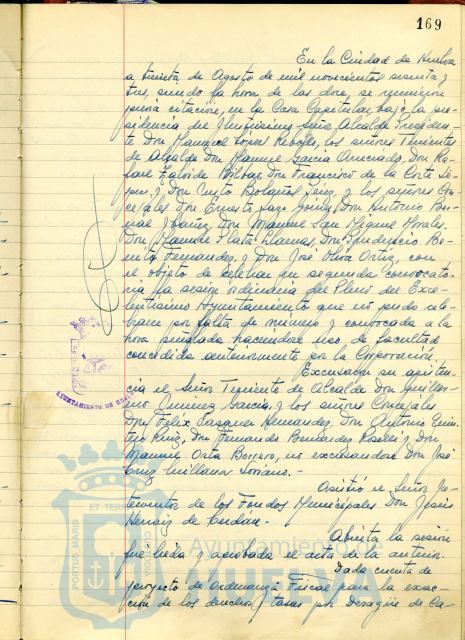 169
En la Ciudad de Huelva
a treinta de Agosto de mil novecientos sesenta y
tres, siendo la hora de las doce, se reunieron
previa citación, en la Casa Capitular, bajo la pre-
sidencia del Ilustrísimo Señor Alcalde Presiden-
te Don Manuel López Rebollo, los señores Tenientes
de Alcalde Don Manuel García Don Ra-
fael de Bilbao, Don Francisco de la Corte Ló-
pez, y Don Justo Bolaños y los señores Con-
cejales Don Ernesto Lazo Don Antonio Ber-
nal Ibáñez, Don Manuel San Miguel Morales,
Don Ramón Plata Llamas, Don Prudencio Be-
nito Fernandez, y Don José Oliva Ortiz, con
el objeto de celebrar en segunda convocato-
ria la sesión ordinaria del Pleno del Exce-
lentísimo Ayuntamiento que no pudo cele-
brarse por falta de número y convocada a la
hora señalada haciendose uso de facultad
concedida anteriormente por la Corporación.
Excusaron su asisten-
cia el Señor Teniente de Alcalde Don Guiller-
mo Jimenez García, y los señores Concejales
Don Felix Vazquez Hernandez, Don Antonio Quin-
tero Ruiz, Don Fernando Bermudez y Don
Manuel Orta Borrero, no excusandose Don José
Cruz Millanes Soriano.-
Asistió el Señor In-
terventor de los Fondos Municipales Don Jesús
Abierta la sesión
fué leida y aprobada el acta de la anterior.
Dada cuenta de
proyecto de Ordenanza Fiscal para la exac-
ción de los derechos y tasas por Desagüe de Ca-
AYUNTAMIENTO DE HUELVA
PORTUS MARIS ET TERRAE CUSTODIA
Ayuntamiento de
HUELVA